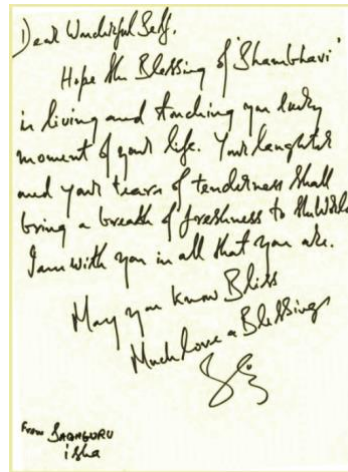 Dear Wonderful Self,
Hope the Blessing of 'Shambhavi'
is living and touching you every
moment of your life. Your laughter
and your tears of tenderness shall
bring a breath of freshness to the World
I am with you in all that you are.
May you know Bliss
Much love & Blessings
From SADHGURU
isha